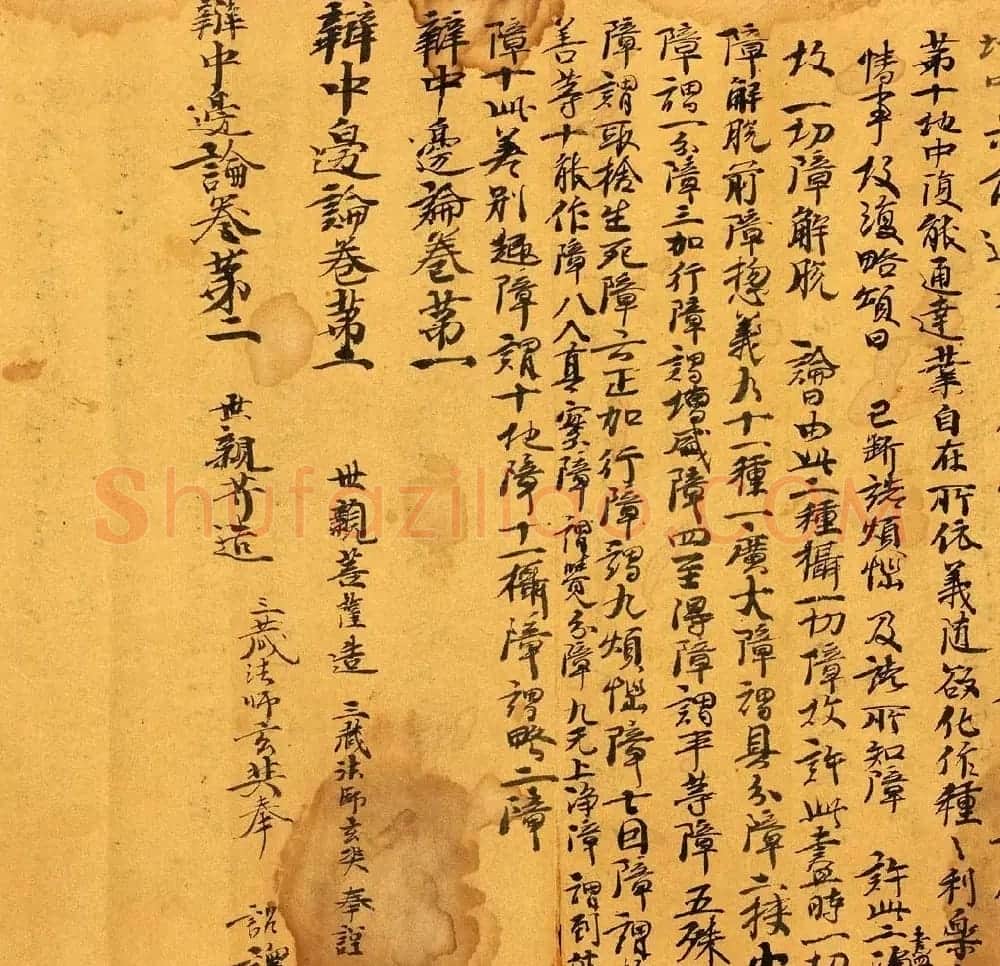 第十地中復能通達業自在所依義随欲化作種〻利樂
情事故復略頌曰 已斷諸煩惱 及諸所知障 許此二
故一切障解脫 論曰由此二種攝一切障故許此盡時一切
障解脫前障揔義有十一種一廣大障謂具分障二狹
障謂一分障三加行障謂增盛障四至得障謂平等障五殊
障謂取捨生死障六正加行障謂九煩惱障七因障謂
善等十能作障八入真實障謂覺分障九无上淨障謂到
障十此差別趣障謂十地障十一攝障謂略二障
辯中邊論卷第一
辯中邊論卷第一 世親菩薩造 三藏法師玄奘奉詔
辯中邊論卷第二 世親菩薩造 三藏法師玄奘奉 詔譯
Shufaziliao.COM